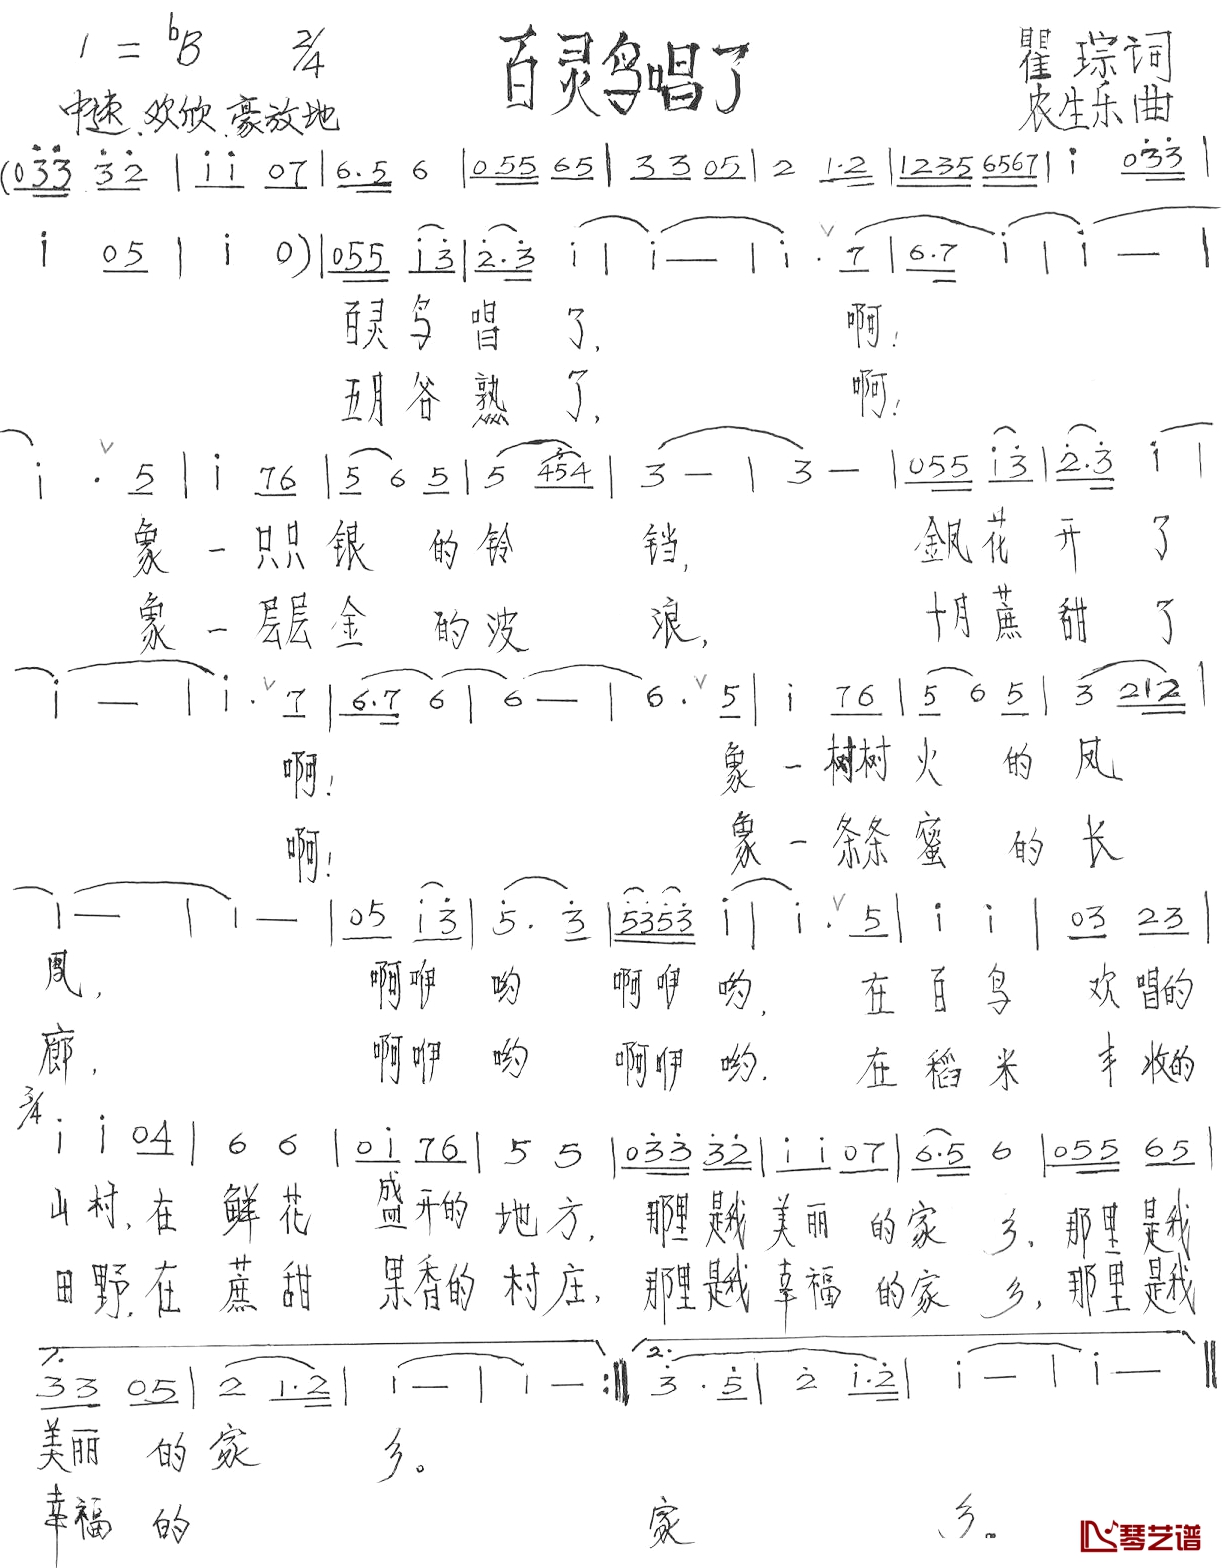 1=ᵇB 2/4 百灵鸟唱了 瞿琮词
中速、欢欣、豪放地 农生乐曲
(0 3̇3̇ 3̇2̇ | i i 07 | 6.5 6 | 055 65 | 33 05 | 2 1.2 | 1235 6567 | i 03̇3̇ |
i 05 | i 0) | 055 i3̇ | 2̇.3̇ i | i — | i . 7 | 6.7 i | i — |
百灵鸟唱了, 啊!
五月谷熟了, 啊!
i . 5 | i 76 | 5 6 5 | 5 454 | 3 — | 3 — | 055 i3̇ | 2̇.3̇ i |
象一只只银的铃铛, 金凤花开了
象一层层金的波浪, 十月蔗甜了
i — | i . 7 | 6.7 6 | 6 — | 6 . 5 | i 76 | 5 6 5 | 3 212 |
啊! 象一树树火的凤
啊! 象一条条蜜的长
i — | i — | 05 i3̇ | 5̇ . 3̇ | 5̇3̇5̇3̇ i | i . 5 | i i | 03 23 |
凰, 啊咿哟啊咿哟, 在百鸟欢唱的
廊, 啊咿哟啊咿哟. 在稻米丰收的
3/4 i i 04 | 6 6 | 0i 76 | 5 5 | 03̇3̇ 3̇2̇ | i i 07 | 6.5 6 | 055 65 |
山村, 在鲜花盛开的地方, 那里是我美丽的家乡, 那里是我
田野, 在蔗甜果香的村庄, 那里是我幸福的家乡, 那里是我
1. 33 05 | 2 1.2 | i — | i — :‖ 2. 3̇ . 5̇ | 2̇ i.2̇ | i — | i — ‖
美丽的家乡。
幸福的家乡。
琴艺谱